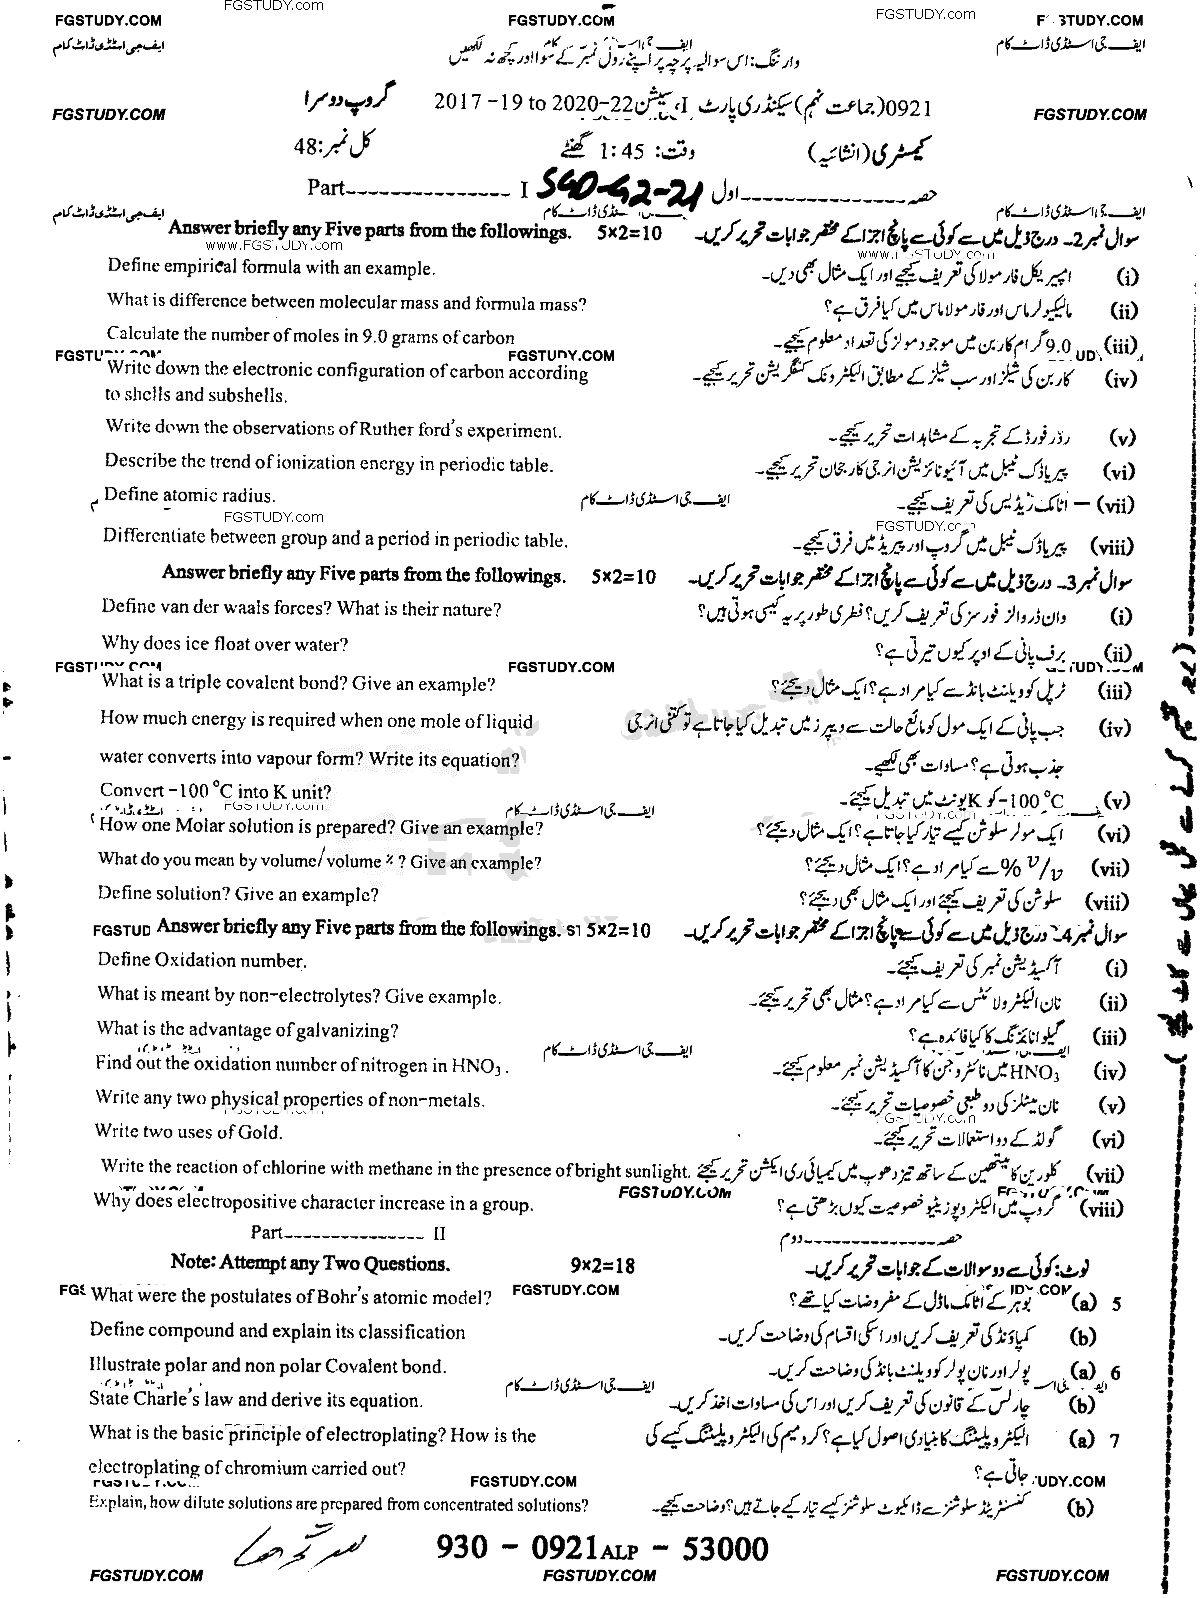 FGSTUDY.COM FGSTUDY.COM FGSTUDY.com FGSTUDY.COM FGSTUDY.com
ایف جی اسٹڈی ڈاٹ کام ایف جی اسٹڈی ڈاٹ کام
وارننگ: اس سوالیہ پرچہ پر اپنے رول نمبر کے سوا اور کچھ نہ لکھیں
0921 (جماعت نہم) سیکنڈری پارٹ I، سیشن 2017-19 to 2020-22 گروپ دوسرا
FGSTUDY.COM FGSTUDY.COM
کیمسٹری (انشائیہ) وقت: 1:45 گھنٹے کل نمبر: 48
Part--------------- I SGD-G2-21 حصہ---------------اول
ایف جی اسٹڈی ڈاٹ کام ایف جی اسٹڈی ڈاٹ کام ایف جی اسٹڈی ڈاٹ کام
Answer briefly any Five parts from the followings. 5×2=10 سوال نمبر 2۔ درج ذیل میں سے کوئی سے پانچ اجزا کے مختصر جوابات تحریر کریں۔
www.FGSTUDY.COM www.FGSTUDY.COM
Define empirical formula with an example. امپیریکل فارمولا کی تعریف کیجیے اور ایک مثال بھی دیں۔ (i)
What is difference between molecular mass and formula mass? مالیکیولر ماس اور فارمولا ماس میں کیا فرق ہے؟ (ii)
Calculate the number of moles in 9.0 grams of carbon 9.0 گرام کاربن میں موجود مولز کی تعداد معلوم کیجیے۔ (iii)
FGSTUDY.COM FGSTUDY.COM
Write down the electronic configuration of carbon according کاربن کی شیلز اور سب شیلز کے مطابق الیکٹرونک کنفگریشن تحریر کیجیے۔ (iv)
to shells and subshells.
Write down the observations of Ruther ford's experiment. ردرفورڈ کے تجربہ کے مشاہدات تحریر کیجیے۔ (v)
Describe the trend of ionization energy in periodic table. پیریاڈک ٹیبل میں آئیونائزیشن انرجی کا رجحان تحریر کیجیے۔ (vi)
Define atomic radius. ایف جی اسٹڈی ڈاٹ کام اٹامک ریڈیس کی تعریف کیجیے۔ (vii)
FGSTUDY.com FGSTUDY.com
Differentiate between group and a period in periodic table. پیریاڈک ٹیبل میں گروپ اور پیریڈ میں فرق کیجیے۔ (viii)
Answer briefly any Five parts from the followings. 5×2=10 سوال نمبر 3۔ درج ذیل میں سے کوئی سے پانچ اجزا کے مختصر جوابات تحریر کریں۔
Define van der waals forces? What is their nature? وان ڈر والز فورسز کی تعریف کریں؟ فطری طور پر یہ کیسی ہوتی ہیں؟ (i)
Why does ice float over water? برف پانی کے اوپر کیوں تیرتی ہے؟ (ii)
FGSTUDY.COM FGSTUDY.COM
What is a triple covalent bond? Give an example? ٹرپل کوویلنٹ بانڈ سے کیا مراد ہے؟ ایک مثال دیجئے؟ (iii)
How much energy is required when one mole of liquid جب پانی کے ایک مول کو مائع حالت سے ویپرز میں تبدیل کیا جاتا ہے تو کتنی انرجی (iv)
water converts into vapour form? Write its equation? جذب ہوتی ہے؟ مساوات بھی لکھیے۔
Convert -100 °C into K unit? -100 °C کو K یونٹ میں تبدیل کیجئے۔ (v)
FGSTUDY.com ایف جی اسٹڈی ڈاٹ کام FGSTUDY.com
How one Molar solution is prepared? Give an example? ایک مولر سلوشن کیسے تیار کیا جاتا ہے؟ ایک مثال دیجئے؟ (vi)
What do you mean by volume/volume %? Give an example? % v/v سے کیا مراد ہے؟ ایک مثال دیجئے؟ (vii)
Define solution? Give an example? سلوشن کی تعریف کیجئے اور ایک مثال بھی دیجئے؟ (viii)
FGSTUD Answer briefly any Five parts from the followings. ST 5×2=10 سوال نمبر 4۔ درج ذیل میں سے کوئی سے پانچ اجزا کے مختصر جوابات تحریر کریں۔
Define Oxidation number. آکسیڈیشن نمبر کی تعریف کیجئے۔ (i)
What is meant by non-electrolytes? Give example. نان الیکٹرولائٹس سے کیا مراد ہے؟ مثال بھی تحریر کیجئے۔ (ii)
What is the advantage of galvanizing? گیلوانائزنگ کا کیا فائدہ ہے؟ (iii)
ایف جی اسٹڈی ڈاٹ کام
Find out the oxidation number of nitrogen in HNO₃. HNO₃ میں نائٹروجن کا آکسیڈیشن نمبر معلوم کیجئے۔ (iv)
Write any two physical properties of non-metals. نان میٹلز کی دو طبعی خصوصیات تحریر کیجئے۔ (v)
FGSTUDY.com
Write two uses of Gold. گولڈ کے دو استعمالات تحریر کیجئے۔ (vi)
Write the reaction of chlorine with methane in the presence of bright sunlight. کلورین کا میتھین کے ساتھ تیز دھوپ میں کیمیائی ری ایکشن تحریر کیجئے (vii)
FGSTUDY.COM
Why does electropositive character increase in a group. گروپ میں الیکٹروپوزیٹیو خصوصیت کیوں بڑھتی ہے؟ (viii)
Part--------------- II حصہ---------------دوم
Note: Attempt any Two Questions. 9×2=18 نوٹ: کوئی سے دو سوالات کے جوابات تحریر کریں۔
FGSTUDY.COM
What were the postulates of Bohr's atomic model? بوہر کے اٹامک ماڈل کے مفروضات کیا تھے؟ (a) 5
Define compound and explain its classification کمپاؤنڈ کی تعریف کریں اور اسکی اقسام کی وضاحت کریں۔ (b)
Illustrate polar and non polar Covalent bond. پولر اور نان پولر کوویلنٹ بانڈ کی وضاحت کریں۔ (a) 6
ایف جی اسٹڈی ڈاٹ کام
State Charle's law and derive its equation. چارلس کے قانون کی تعریف کریں اور اس کی مساوات اخذ کریں۔ (b)
What is the basic principle of electroplating? How is the الیکٹروپلیٹنگ کا بنیادی اصول کیا ہے؟ کرومیم کی الیکٹروپلیٹنگ کیسے کی (a) 7
electroplating of chromium carried out? جاتی ہے؟
FGSTUDY.COM UDY.COM
Explain, how dilute solutions are prepared from concentrated solutions? کنسنٹریٹڈ سلوشنز سے ڈائلیوٹ سلوشنز کیسے تیار کیے جاتے ہیں؟ وضاحت کیجیے۔ (b)
930 - 0921ALP - 53000
FGSTUDY.COM FGSTUDY.COM FGSTUDY.COM